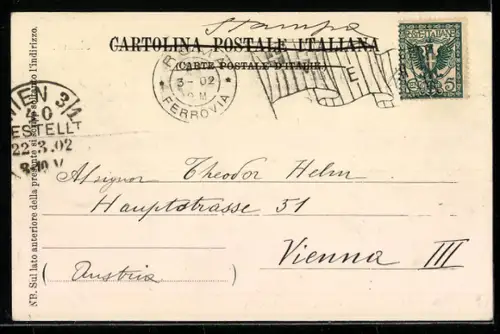 Stampa
CARTOLINA POSTALE ITALIANA
(CARTE POSTALE D'ITALIE)
ROMA
3-02
FERROVIA
WIEN 3/1
40
BESTELLT
22.3.02
NB. Sul lato anteriore della presente si scrive soltanto l'indirizzo.
Al signor Theodor Helm
Hauptstrasse 51
Vienna III
(Austria)